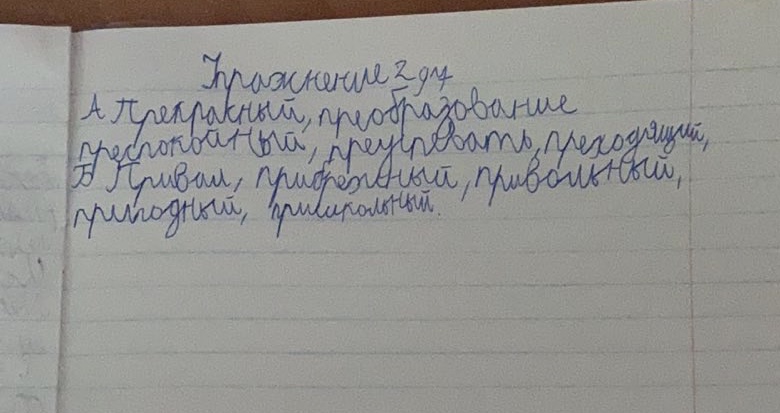 Упражнение 2 д/з
А Прекрасный, преобразование
преспокойный, преуспевать, преходящий,
Б Привал, прибрежный, привольный,
природный, пришкольный.